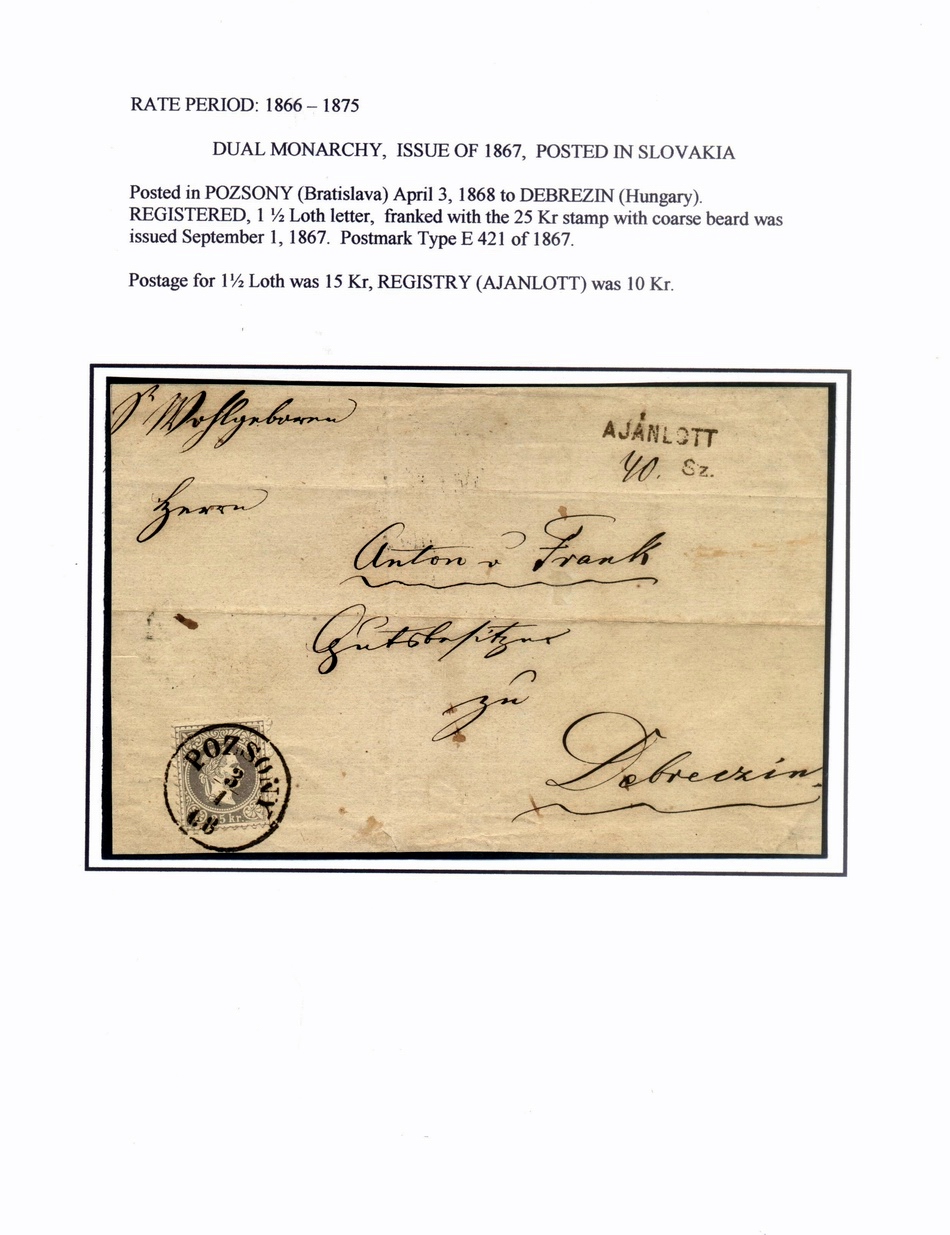 RATE PERIOD: 1866 – 1875
DUAL MONARCHY, ISSUE OF 1867, POSTED IN SLOVAKIA
Posted in POZSONY (Bratislava) April 3, 1868 to DEBREZIN (Hungary).
REGISTERED, 1 ½ Loth letter, franked with the 25 Kr stamp with coarse beard was
issued September 1, 1867. Postmark Type E 421 of 1867.
Postage for 1½ Loth was 15 Kr, REGISTRY (AJANLOTT) was 10 Kr.
Wohlgeboren
AJÁNLOTT
40. Sz.
Herrn
Anton v Frank
Gutsbesitzer
zu
Debreczin.
POZSONY
3
68
5 kr.